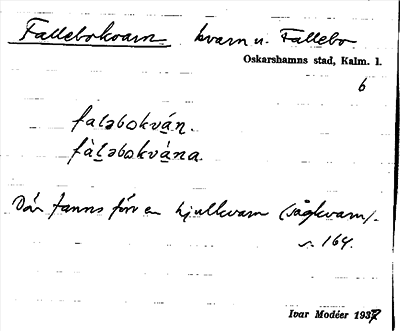 Fallebokvarn kvarn u. Fallebo
Oskarshamns stad, Kalm. l.
6
faləbokván.
fàləbokvàna.
Där fanns förr en hjulkvarn (sågkvarn).
s. 164.
Ivar Modéer 1937